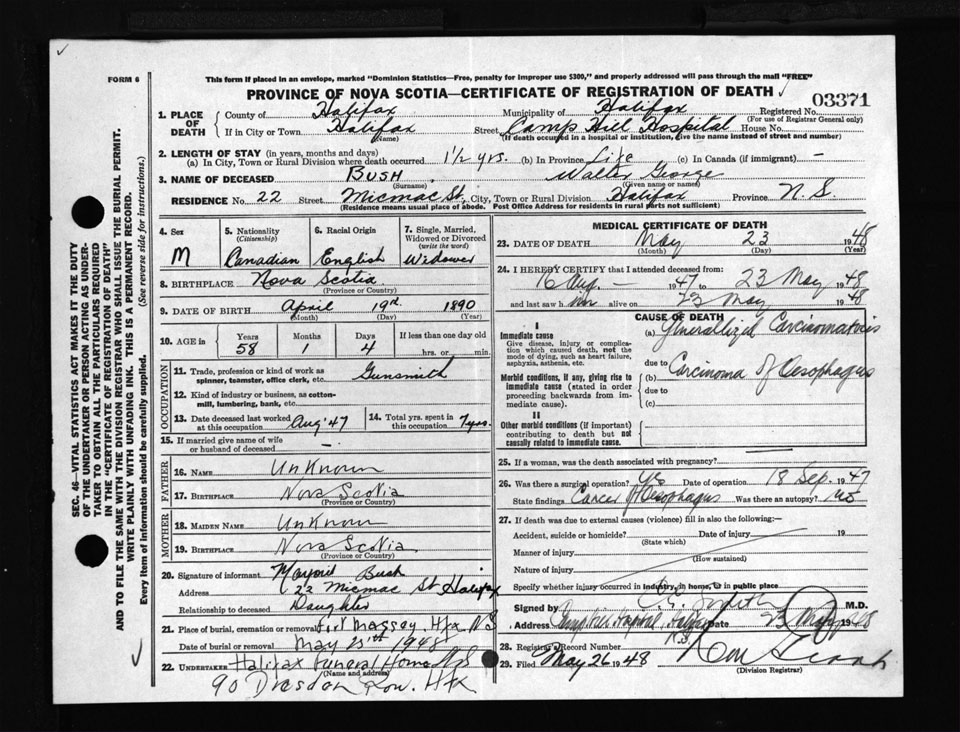 FORM 6
This form if placed in an envelope, marked "Dominion Statistics—Free, penalty for improper use $300," and properly addressed will pass through the mail "FREE"
PROVINCE OF NOVA SCOTIA—CERTIFICATE OF REGISTRATION OF DEATH
03371
1. PLACE OF DEATH County of Halifax Municipality of Halifax Registered No.
(For use of Registrar General only)
If in City or Town Halifax Street Camp Hill Hospital House No.
(Name) (If death occurred in a hospital or institution, give the name instead of street and number)
2. LENGTH OF STAY (in years, months and days)
(a) In City, Town or Rural Division where death occurred 1½ yrs. (b) In Province Life (c) In Canada (if immigrant) —
3. NAME OF DECEASED BUSH Walter George
(Surname) (Given name or names)
RESIDENCE No. 22 Street Micmac St. City, Town or Rural Division Halifax Province N.S.
(Residence means usual place of abode. Post Office Address for residents in rural parts not sufficient)
4. Sex 5. Nationality (Citizenship) 6. Racial Origin 7. Single, Married, Widowed or Divorced (write the word)
M Canadian English Widower
8. BIRTHPLACE Nova Scotia
(Province or Country)
9. DATE OF BIRTH April 19 1890
(Month) (Day) (Year)
10. AGE in Years Months Days If less than one day old
58 1 4 hrs. or min.
OCCUPATION
11. Trade, profession or kind of work as spinner, teamster, office clerk, etc. Gunsmith
12. Kind of industry or business, as cotton-mill, lumbering, bank, etc.
13. Date deceased last worked at this occupation Aug '47 14. Total yrs. spent in this occupation 7 yrs.
15. If married give name of wife or husband of deceased —
FATHER
16. NAME Unknown
17. BIRTHPLACE Nova Scotia
(Province or Country)
MOTHER
18. MAIDEN NAME Unknown
19. BIRTHPLACE Nova Scotia
(Province or Country)
20. Signature of informant Marjorie Bush
Address 22 Micmac St Halifax
Relationship to deceased Daughter
21. Place of burial, cremation or removal Fort Massey, Hfx N S
Date of burial or removal May 1948
22. UNDERTAKER Halifax Funeral Home
(Name and address)
90 Dresden Row. Hfx
MEDICAL CERTIFICATE OF DEATH
23. DATE OF DEATH May 23 1948
(Month) (Day) (Year)
24. I HEREBY CERTIFY that I attended deceased from:
16 Aug. — 1947 to 23 May 1948
and last saw him alive on 23 May 1948
CAUSE OF DEATH
I
Immediate cause
Give disease, injury or complication which caused death, not the mode of dying, such as heart failure, asphyxia, asthenia, etc.
(a) Generallized Carcinomatosis
due to
Morbid conditions, if any, giving rise to immediate cause (stated in order proceeding backwards from immediate cause).
(b) Carcinoma of Oesophagus
due to
(c)
II
Other morbid conditions (if important) contributing to death but not causally related to immediate cause.
25. If a woman, was the death associated with pregnancy?
26. Was there a surgical operation? yes Date of operation 18 Sep. 1947
State findings Cancer of Oesophagus Was there an autopsy? no
27. If death was due to external causes (violence) fill in also the following:—
Accident, suicide or homicide? Date of injury 19
(State which)
Manner of injury
(How sustained)
Nature of injury
Specify whether injury occurred in industry, in home, or in public place
Signed by Smith M.D.
Address Camp Hill Hospital, Halifax Date 23 May 1948
N.S.
28. Registrar's Record Number
29. Filed May 26 1948
(Division Registrar)
SEC. 46—VITAL STATISTICS ACT MAKES IT THE DUTY
OF THE UNDERTAKER OR PERSON ACTING AS UNDER-
TAKER TO OBTAIN ALL THE PARTICULARS REQUIRED
IN THE "CERTIFICATE OF REGISTRATION OF DEATH"
AND TO FILE THE SAME WITH THE DIVISION REGISTRAR WHO SHALL ISSUE THE BURIAL PERMIT.
WRITE PLAINLY WITH UNFADING INK. THIS IS A PERMANENT RECORD.
Every item of information should be carefully supplied. (See reverse side for instructions.)